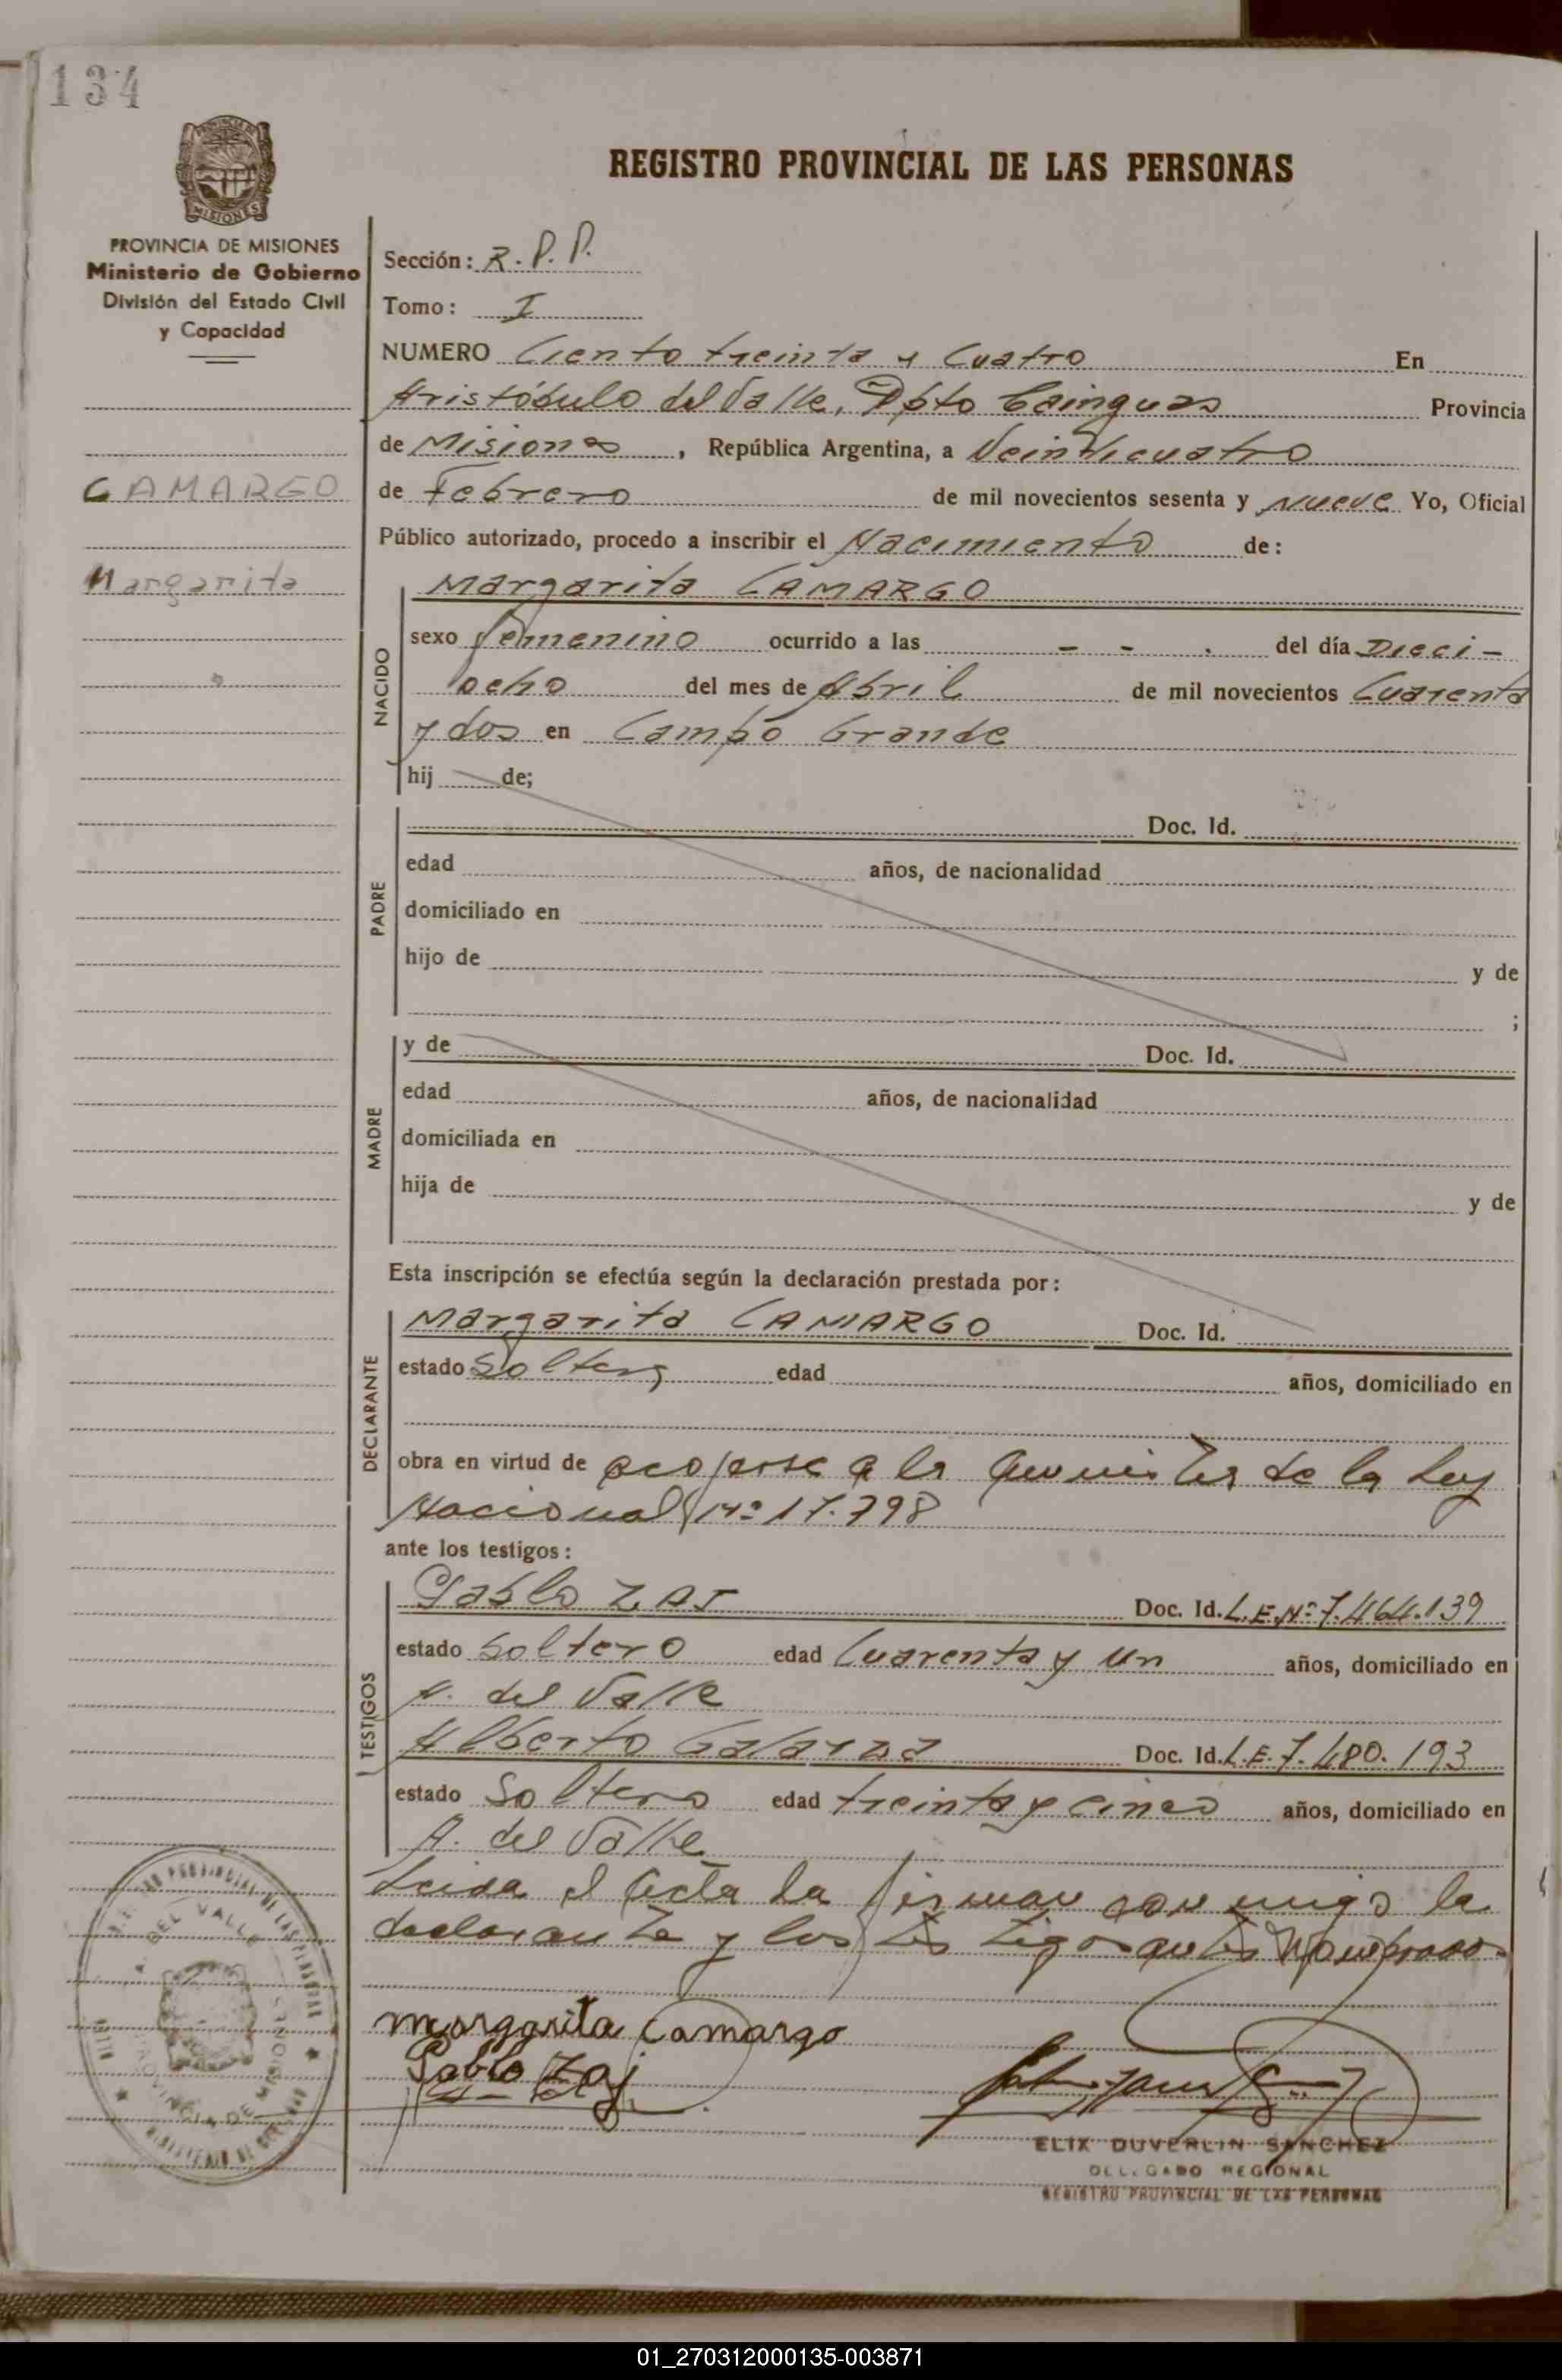 134
PROVINCIA DE MISIONES
Ministerio de Gobierno
División del Estado Civil
y Capacidad
CAMARGO
Margarita
REGISTRO PROVINCIAL DE LAS PERSONAS
Sección: R. P. P.
Tomo: I
NUMERO Ciento treinta y Cuatro En
Aristóbulo del Valle, Dpto Cainguas Provincia
de Misiones, República Argentina, a Veinticuatro
de Febrero de mil novecientos sesenta y nueve Yo, Oficial
Público autorizado, procedo a inscribir el Nacimiento de:
NACIDO
Margarita CAMARGO
sexo femenino ocurrido a las - - . del día Dieci-
ocho del mes de Abril de mil novecientos Cuarenta
y dos en Campo Grande
hij de;
PADRE
Doc. Id.
edad años, de nacionalidad
domiciliado en
hijo de y de
;
MADRE
y de Doc. Id.
edad años, de nacionalidad
domiciliada en
hija de y de
Esta inscripción se efectúa según la declaración prestada por:
DECLARANTE
Margarita CAMARGO Doc. Id.
estado Soltera edad años, domiciliado en
obra en virtud de acojerse a la de la Ley
Nacional Nº 17.798
ante los testigos:
TESTIGOS
Pablo ZAJ Doc. Id. L.E.Nº 7.464.139
estado Soltero edad Cuarenta y un años, domiciliado en
A. del Valle
Alberto Galarza Doc. Id. L.E. 7.480.193
estado Soltero edad treinta y cinco años, domiciliado en
A. del Valle
Leida el Acta la firman conmigo la
declarante y los testigos antes nombrados
margarita Camargo
Pablo Zaj
ELIX DUVERLIN SANCHEZ
DELEGADO REGIONAL
REGISTRO PROVINCIAL DE LAS PERSONAS
01_270312000135-003871